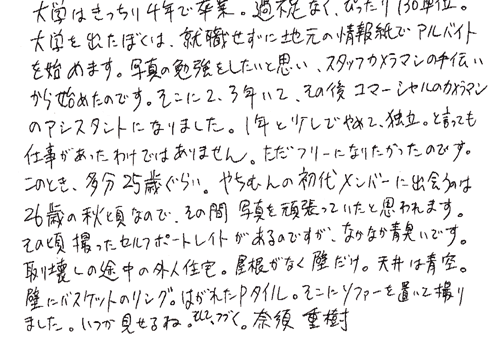 大学はきっちり4年で卒業。過不足なく、ぴったり130単位。
大学を出たぼくは、就職せずに地元の情報紙でアルバイト
を始めます。写真の勉強をしたいと思い、スタッフカメラマンの手伝い
から始めたのです。そこに2、3年いて、その後コマーシャルのカメラマン
のアシスタントになりました。1年と少しでやめて、独立。と言っても
仕事があったわけではありません。ただフリーになりたかったのです。
このとき、多分25歳ぐらい。やちむんの初代メンバーに出会うのは
26歳の秋頃なので、その間 写真を頑張っていたと思われます。
その頃 撮ったセルフポートレイトがあるのですが、なかなか青臭いです。
取り壊しの途中の外人住宅。屋根がなく壁だけ。天井は青空。
壁にバスケットのリング。はがれたPタイル。そこにソファーを置いて撮り
ました。いつか見せるね。そして、つづく。奈須 重樹